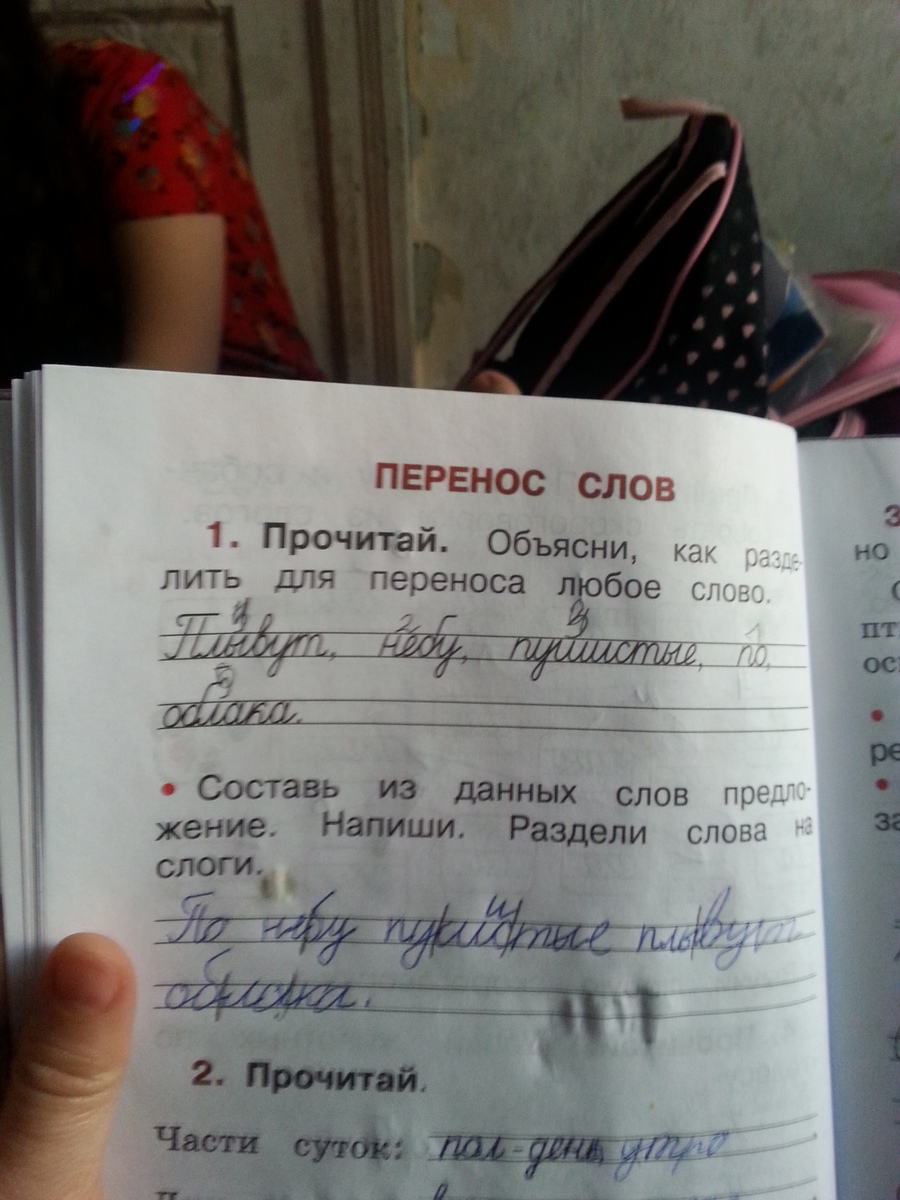 ПЕРЕНОС СЛОВ
1. Прочитай. Объясни, как разде-
лить для переноса любое слово.
Плывут, небу, пушистые, по,
облака.
• Составь из данных слов предло-
жение. Напиши. Раздели слова на
слоги.
По небу пушистые плывут
облака.
2. Прочитай.
Части суток: пол-день, утро
но
пт
ос
ре
за